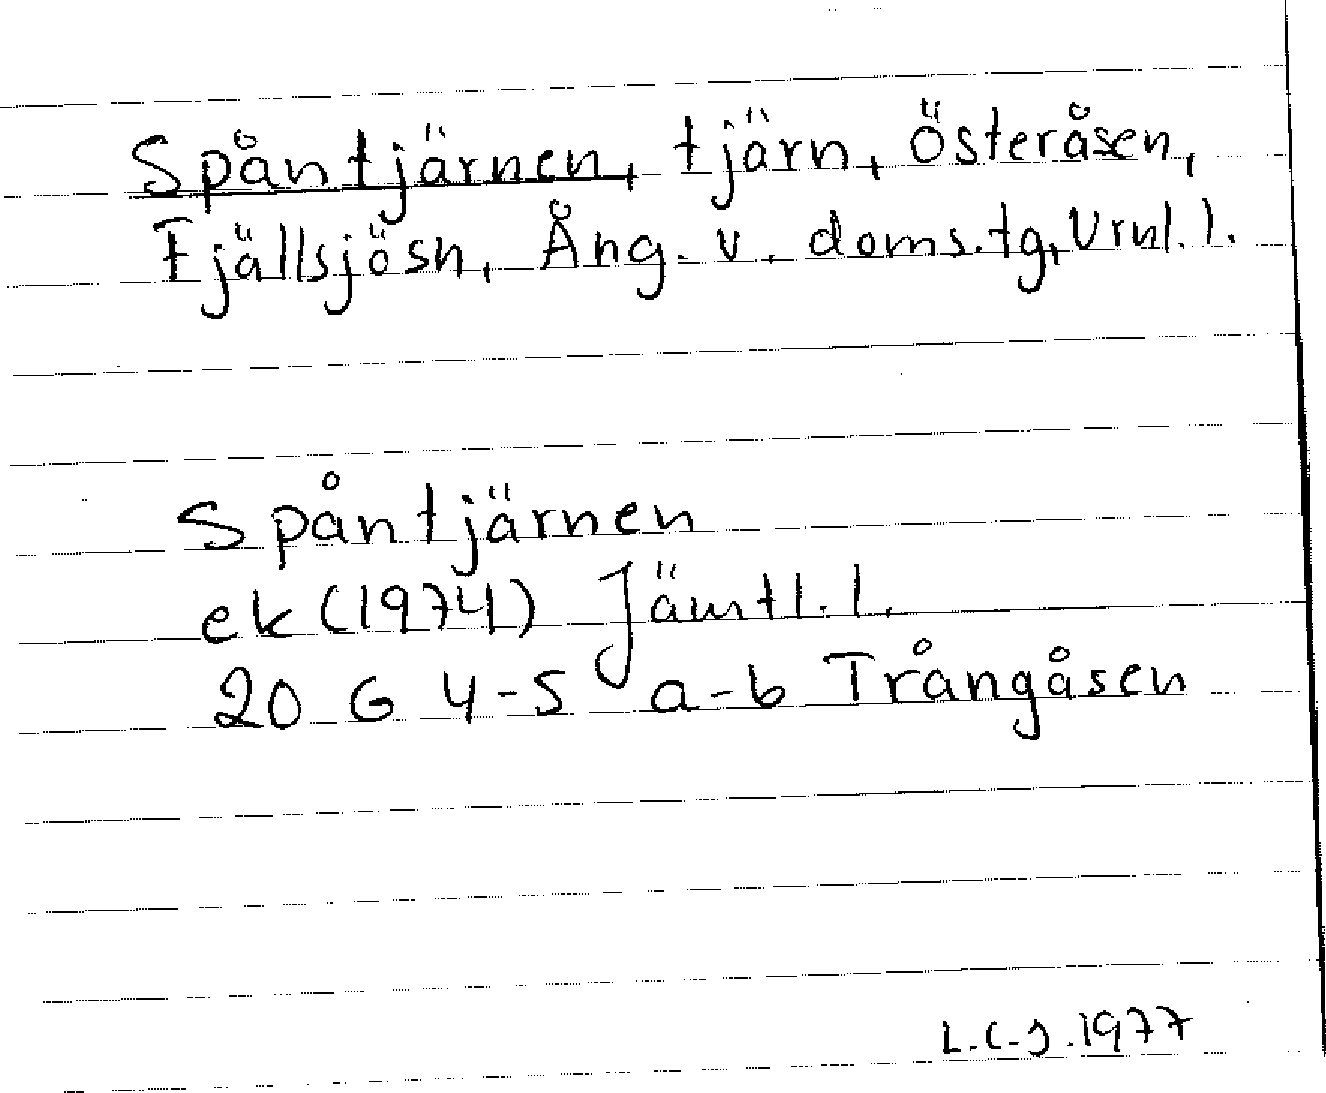 Spåntjärnen, tjärn, Österåsen,
Fjällsjösn, Ång. v. doms.tg, Vrnl.l.
Spåntjärnen
ek (1974) Jämtl.l.
20 G 4-5 a-b Trångåsen
L.C-J.1977